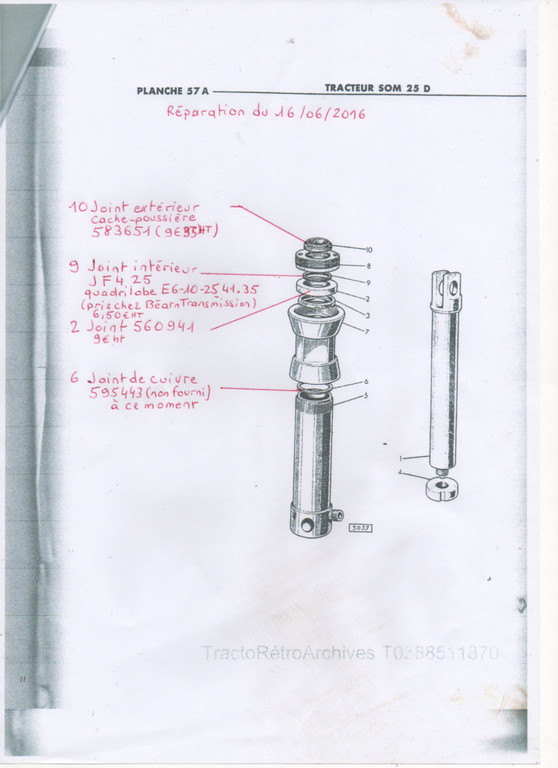 PLANCHE 57 A TRACTEUR SOM 25 D
Réparation du 16/06/2016
10 Joint extérieur
cache-poussière
583651 (9€ HT)
9 Joint intérieur
JF 4, 25
quadrilobe E6-10-25 41.35
(pris chez Béarn Transmission)
6,50€ HT
2 Joint 560941
9€ ht
6 Joint de cuivre
595443 (non fourni)
à ce moment
10
8
9
2
3
7
6
5
1
4
3057
TractoRétroArchives T0388511870